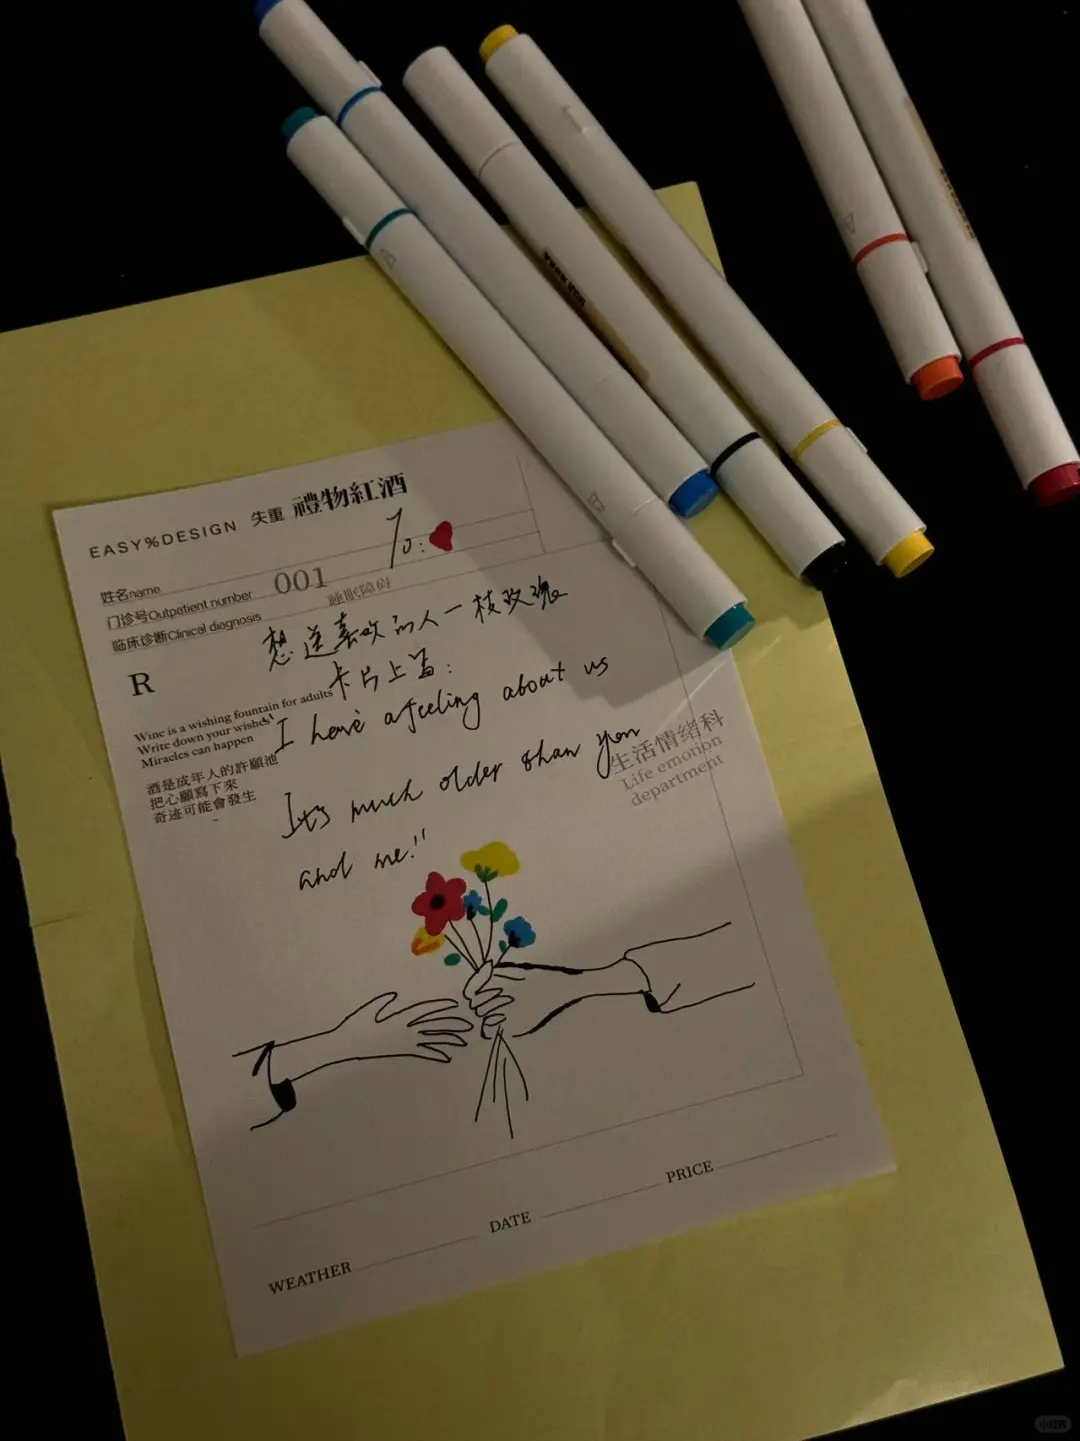 EASY%DESIGN 失重 禮物紅酒
To:
姓名name
门诊号Outpatient number 001
临床诊断Clinical diagnosis 睡眠障碍
想送喜欢的人一枝玫瑰
R
卡片上写:
Wine is a wishing fountain for adults
Write down your wishes
Miracles can happen
"I have a feeling about us
酒是成年人的許願池
把心願寫下來
奇迹可能會發生
生活情绪科
Life emotion
department
It's much older than you
and me!"
WEATHER
DATE
PRICE
小红书